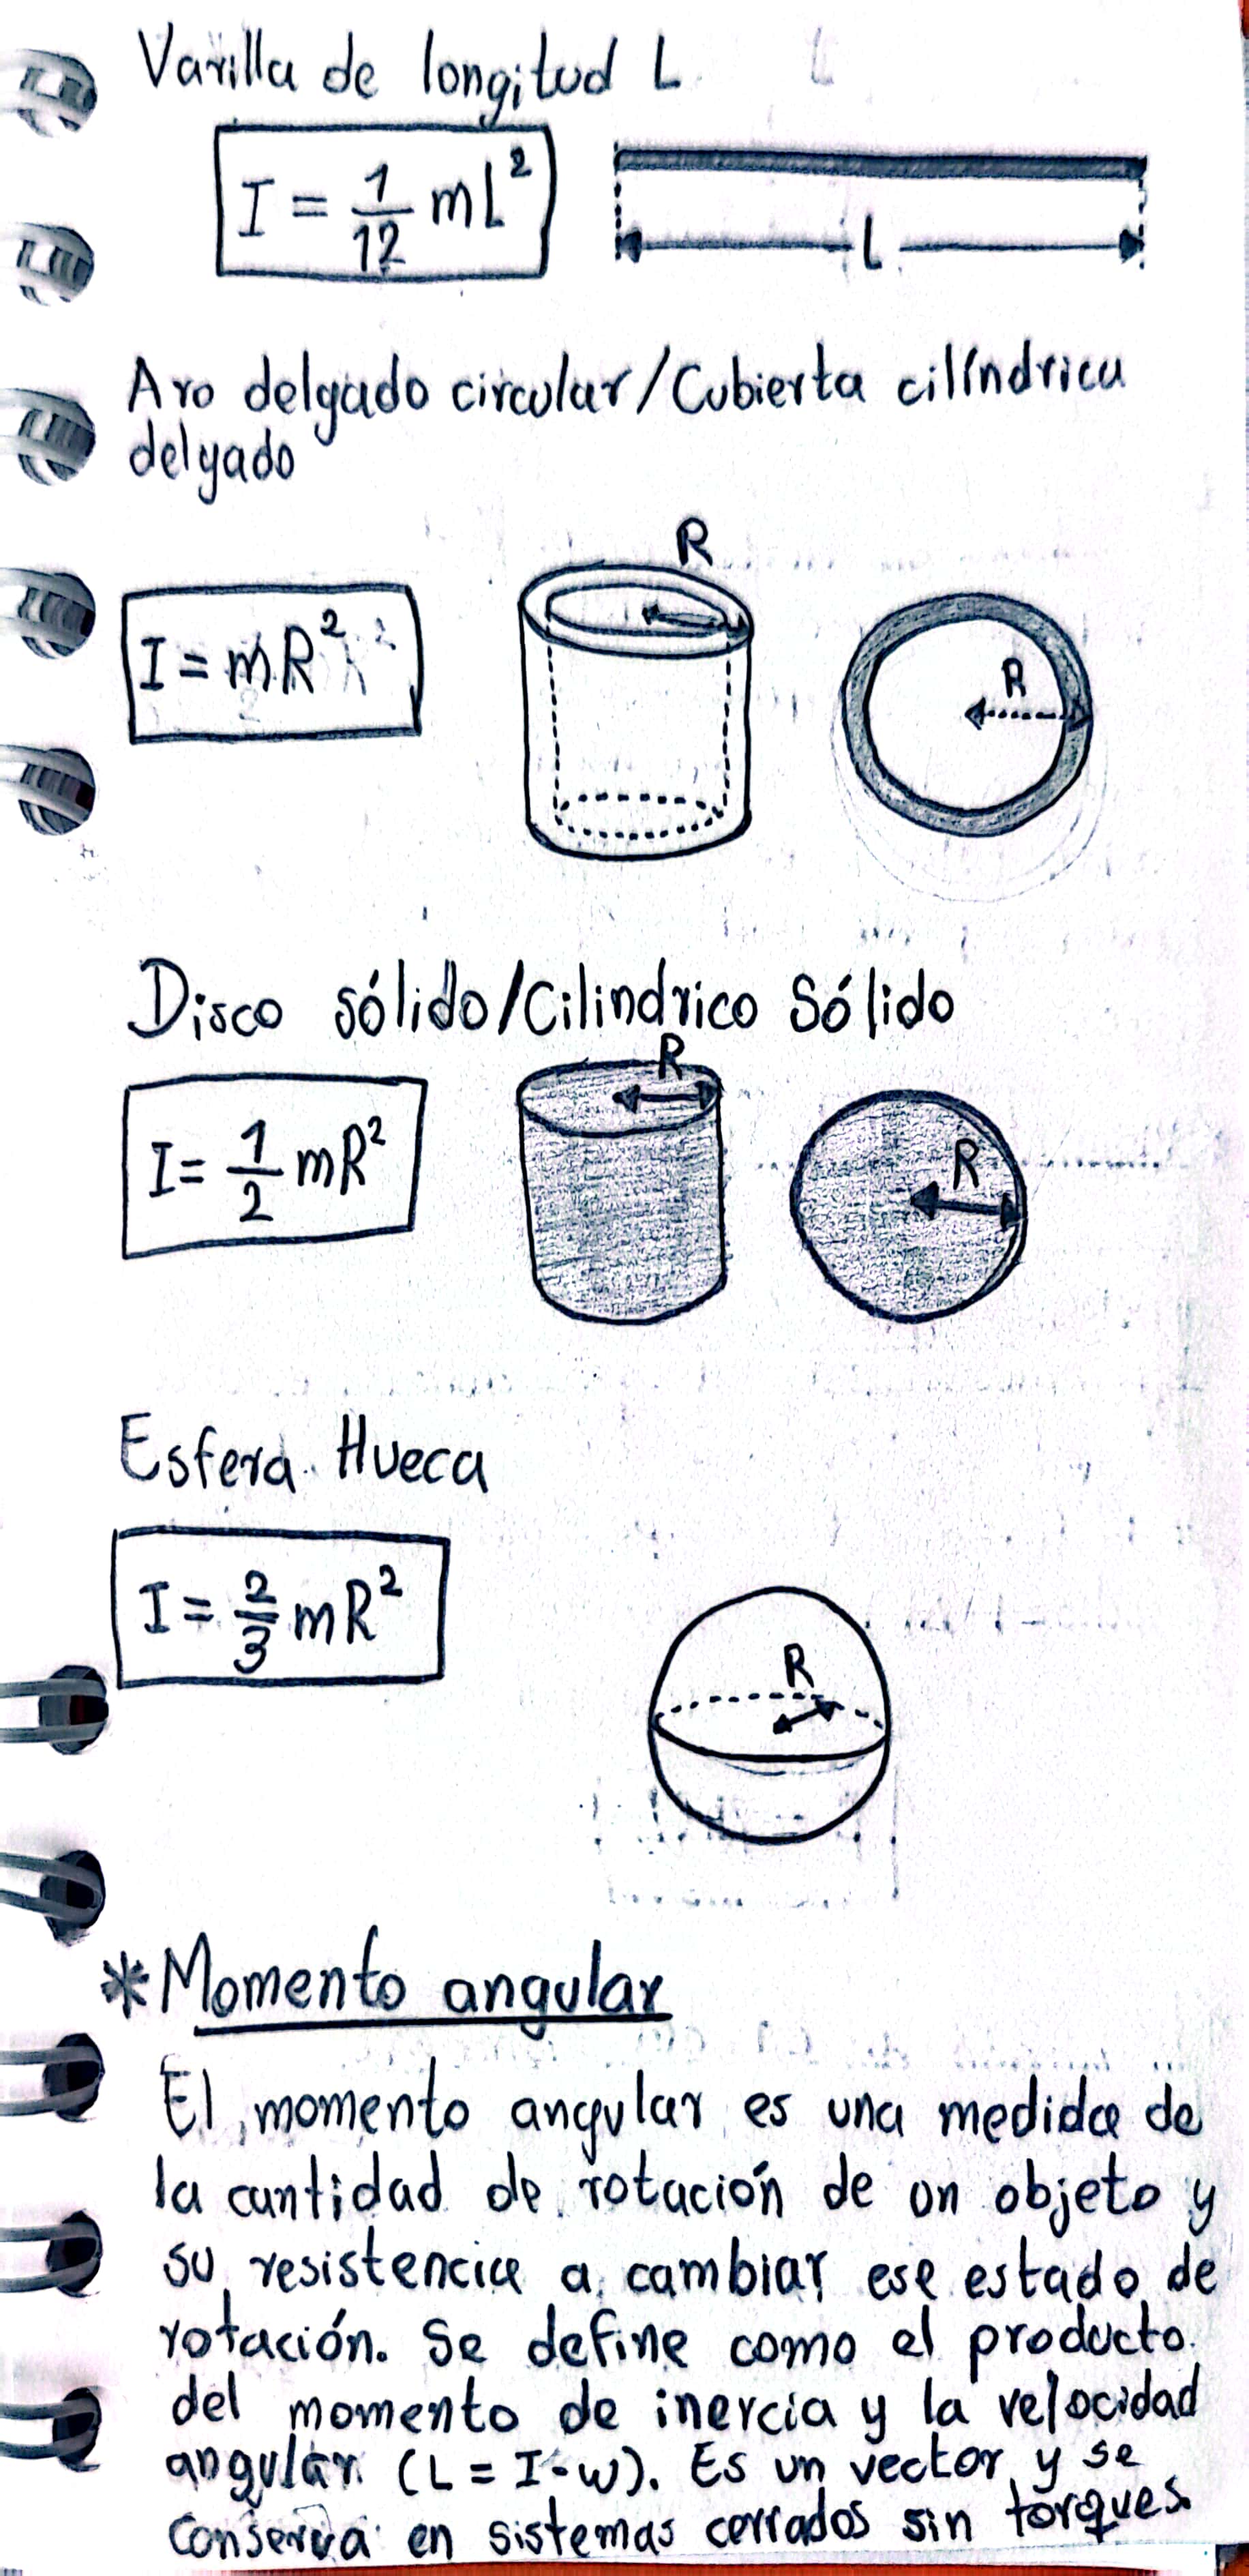 Varilla de longitud L
I = 1/12 mL²
L
Aro delgado circular/Cubierta cilíndrica
delgado
R
I = mR²
R
Disco sólido/Cilindrico Sólido
R
I = 1/2 mR²
R
Esfera Hueca
I = 2/3 mR²
R
*Momento angular
El momento angular es una medida de
la cantidad de rotación de un objeto y
su resistencia a cambiar ese estado de
rotación. Se define como el producto
del momento de inercia y la velocidad
angular (L = I·w). Es un vector y se
conserva en sistemas cerrados sin torques